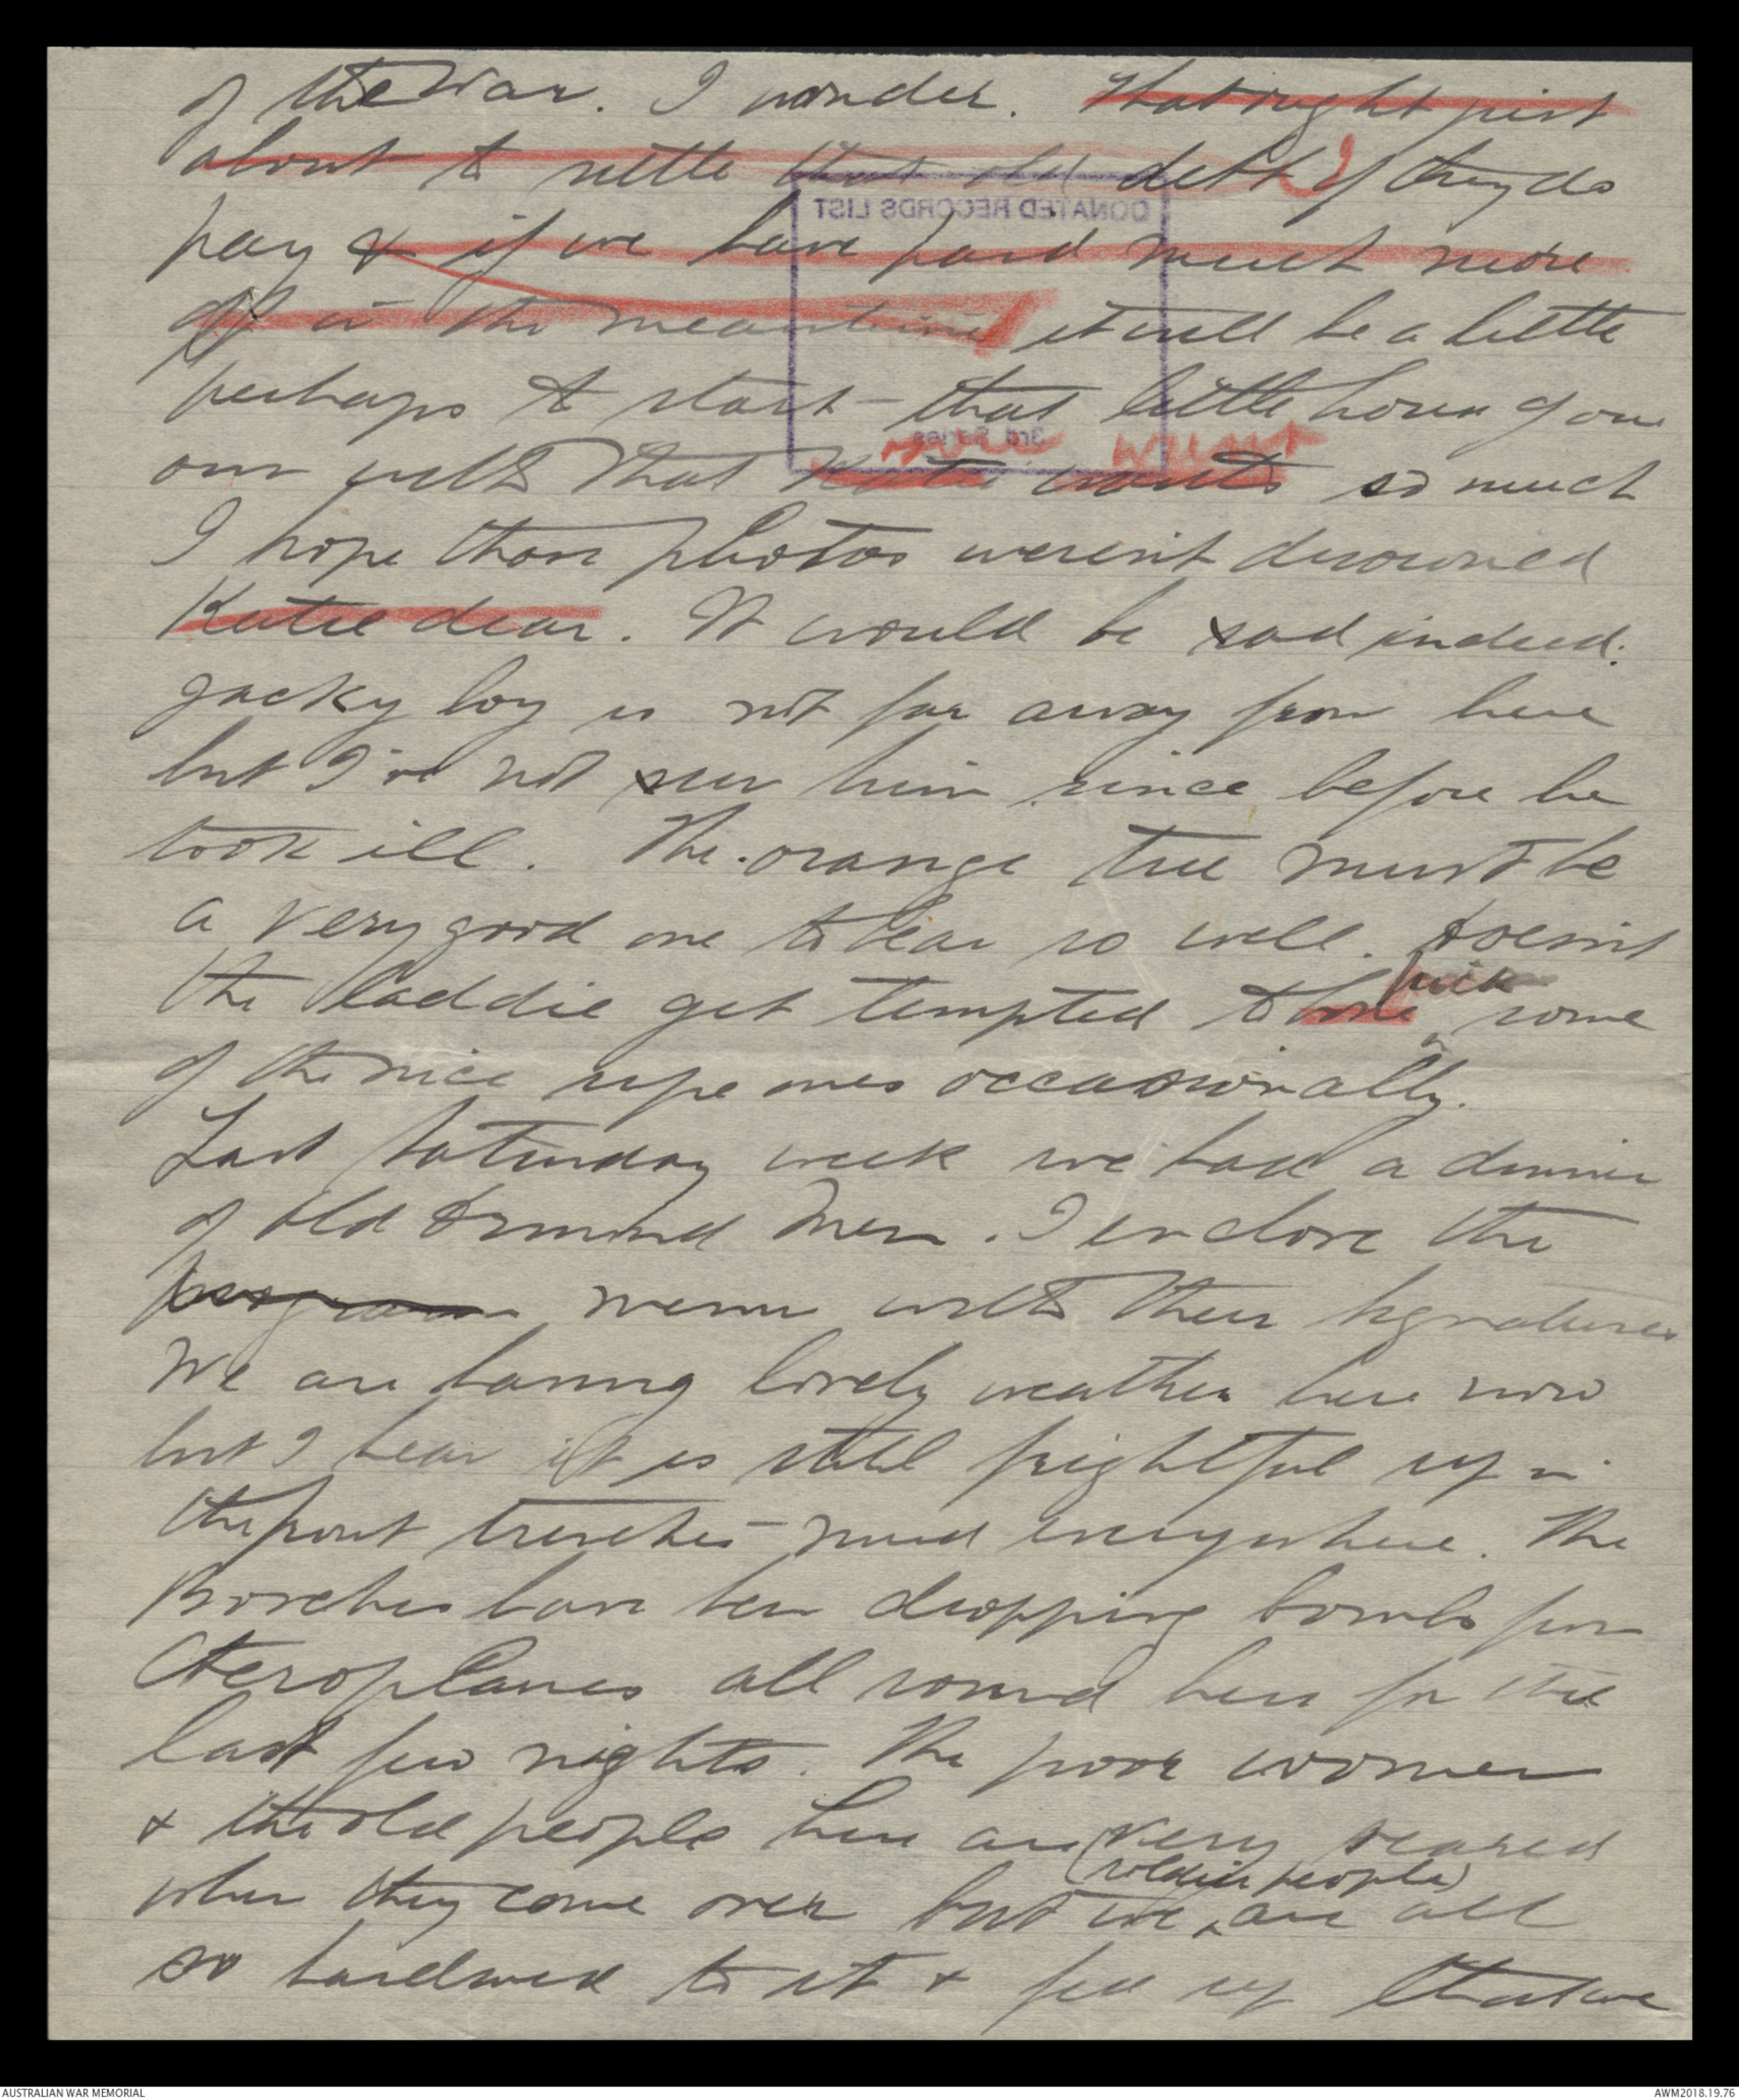 of the War. I wonder. That might just
about to settle that old debt if they do
pay & if we have paid much more
off in the meantime it will be a little
perhaps to start – that little home of our
DONATED RECORDS LIST
3rd Series
you want
own with that Katie wants so much
I hope those photos weren't drowned
Katie dear. It would be sad indeed.
Jacky boy is not far away from here
but I've not seen him since before he
took ill. The orange tree must be
a very good one to bear so well. Doesn't
pick
the laddie get tempted to some
of the nice ripe ones occasionally.
Last Saturday week we had a dinner
of old Ormond Men. I enclose the
program menu with their signatures
We are having lovely weather here now
but I hear it is still frightful up in
the front trenches – mud everywhere. The
Bosches have been dropping bombs from
Aeroplanes all round here for the
last few nights. The poor women
& the old people here are very scared
(soldier people)
when they come over but we are all
so hardened to it & fed up that we
AUSTRALIAN WAR MEMORIAL
AWM2018.19.76